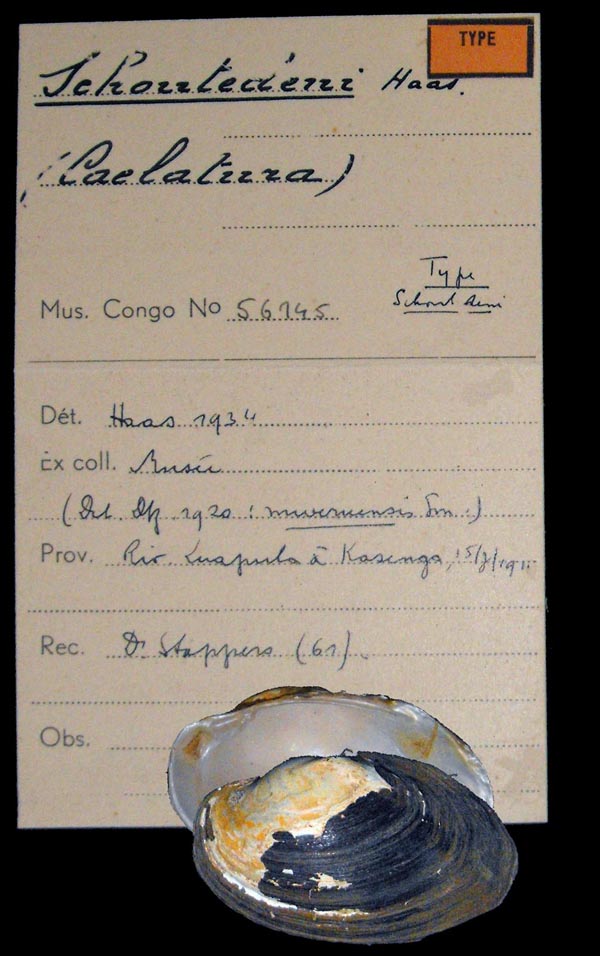 TYPE
Schoutedeni Haas.
(Caelatura)
Type
Mus. Congo No 56145
Dét. Haas 1934
Ex coll. Musée
(Det. Dtz 1920 : mweruensis Sm.)
Prov. Riv. Luapula à Kasenga,
Rec. Dr Stappers (61).
Obs.